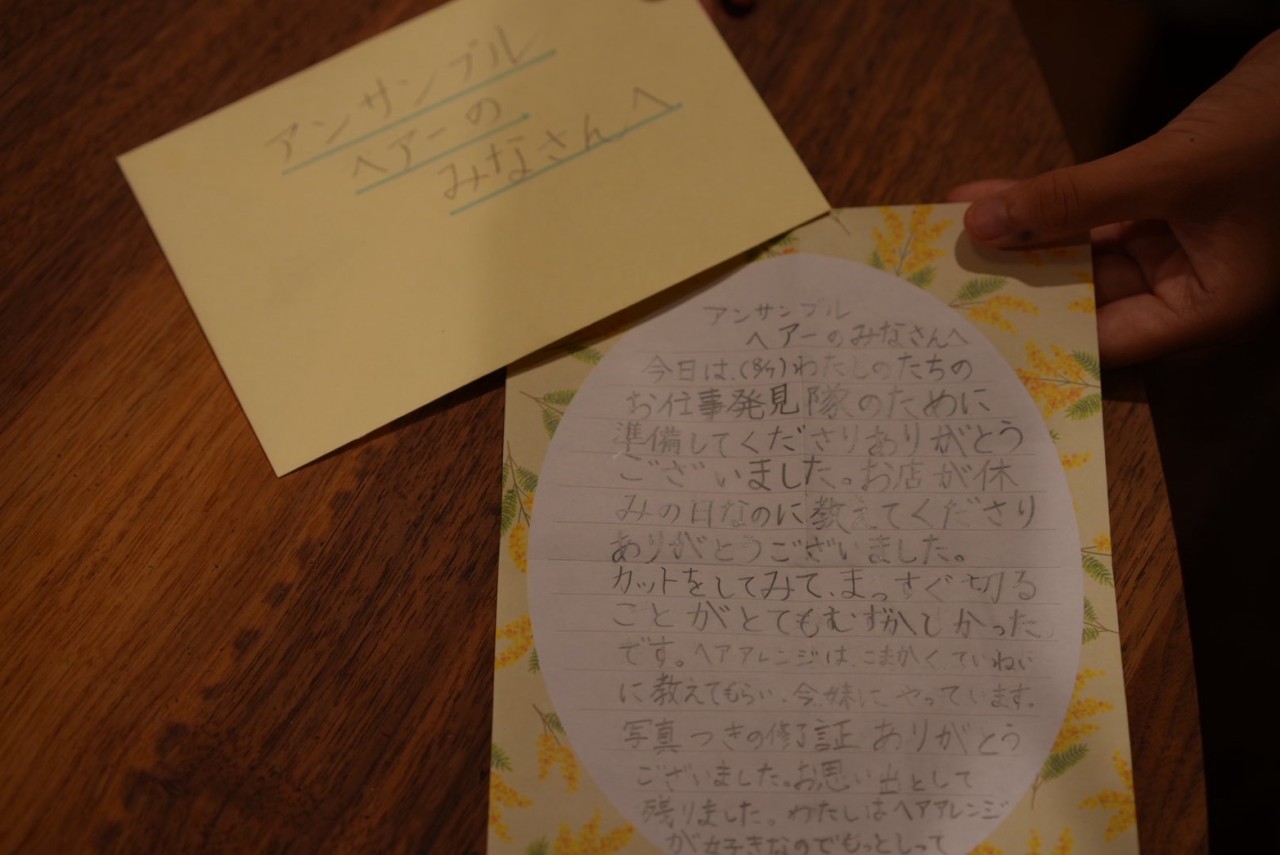 アンサンブル
ヘアーの
みなさんへ
アンサンブル
ヘアーのみなさんへ
今日は、(8/7)わたしのたちの
お仕事発見隊のために
準備してくださりありがとう
ございました。お店が休
みの日なのに教えてくださり
ありがとうございました。
カットをしてみて、まっすぐ切る
ことがとてもむずかしかった
です。ヘアアレンジは、こまかくていねい
に教えてもらい、今、妹にやっています。
写真つきの修了証ありがとう
ございました。お思い出として
残りました。わたしはヘアアレンジ
が好きなのでもっとしって